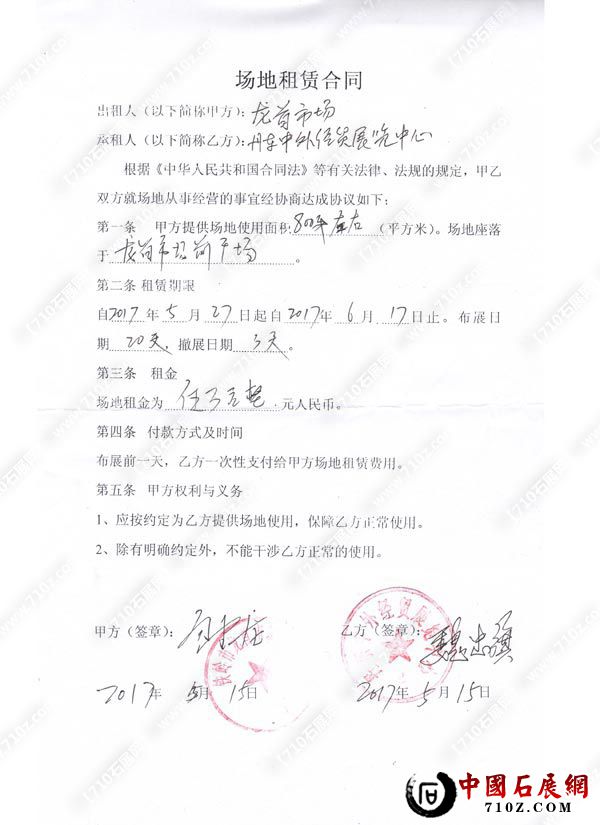 场地租赁合同
出租人（以下简称甲方）：龙首市场
承租人（以下简称乙方）：丹东中外经贸展览中心
根据《中华人民共和国合同法》等有关法律、法规的规定，甲乙
双方就场地从事经营的事宜经协商达成协议如下：
第一条 甲方提供场地使用面积800平左右（平方米）。场地座落
于龙首市场前广场。
第二条 租赁期限
自2017年5月27日起自2017年6月17日止。布展日
期20天，撤展日期3天。
第三条 租金
场地租金为 元人民币。
第四条 付款方式及时间
布展前一天，乙方一次性支付给甲方场地租赁费用。
第五条 甲方权利与义务
1、应按约定为乙方提供场地使用，保障乙方正常使用。
2、除有明确约定外，不能干涉乙方正常的使用。
甲方（签章）：
乙方（签章）：
2017年5月15日
2017年5月15日
中國石展網
710z.com